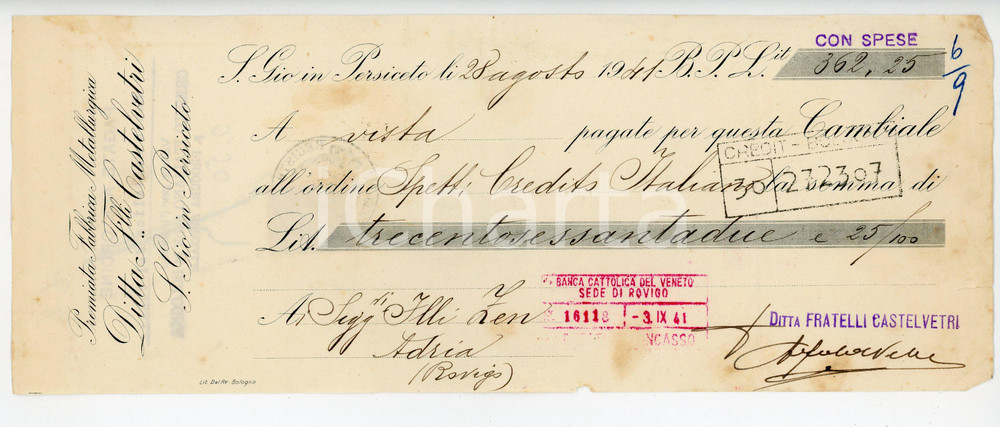 Premiata Fabbrica Metallurgica
Ditta F.lli Castelvetri
S. Gio in Persiceto
CON SPESE
S. Gio in Persiceto li 28 agosto 1941 B. P. L.it 362,25
6/9
A vista pagate per questa Cambiale
CREDIT - BOLOGNA
30 272307
all'ordine Spett. Credito Italiano la somma di
Lit. trecentosessantadue e 25/100
BANCA CATTOLICA DEL VENETO
SEDE DI ROVIGO
16118 -3. IX 41
INCASSO
Ai Sigg.ri F.lli Zen
Adria
(Rovigo)
DITTA FRATELLI CASTELVETRI
Lit. Dal Re - Bologna
iCharta